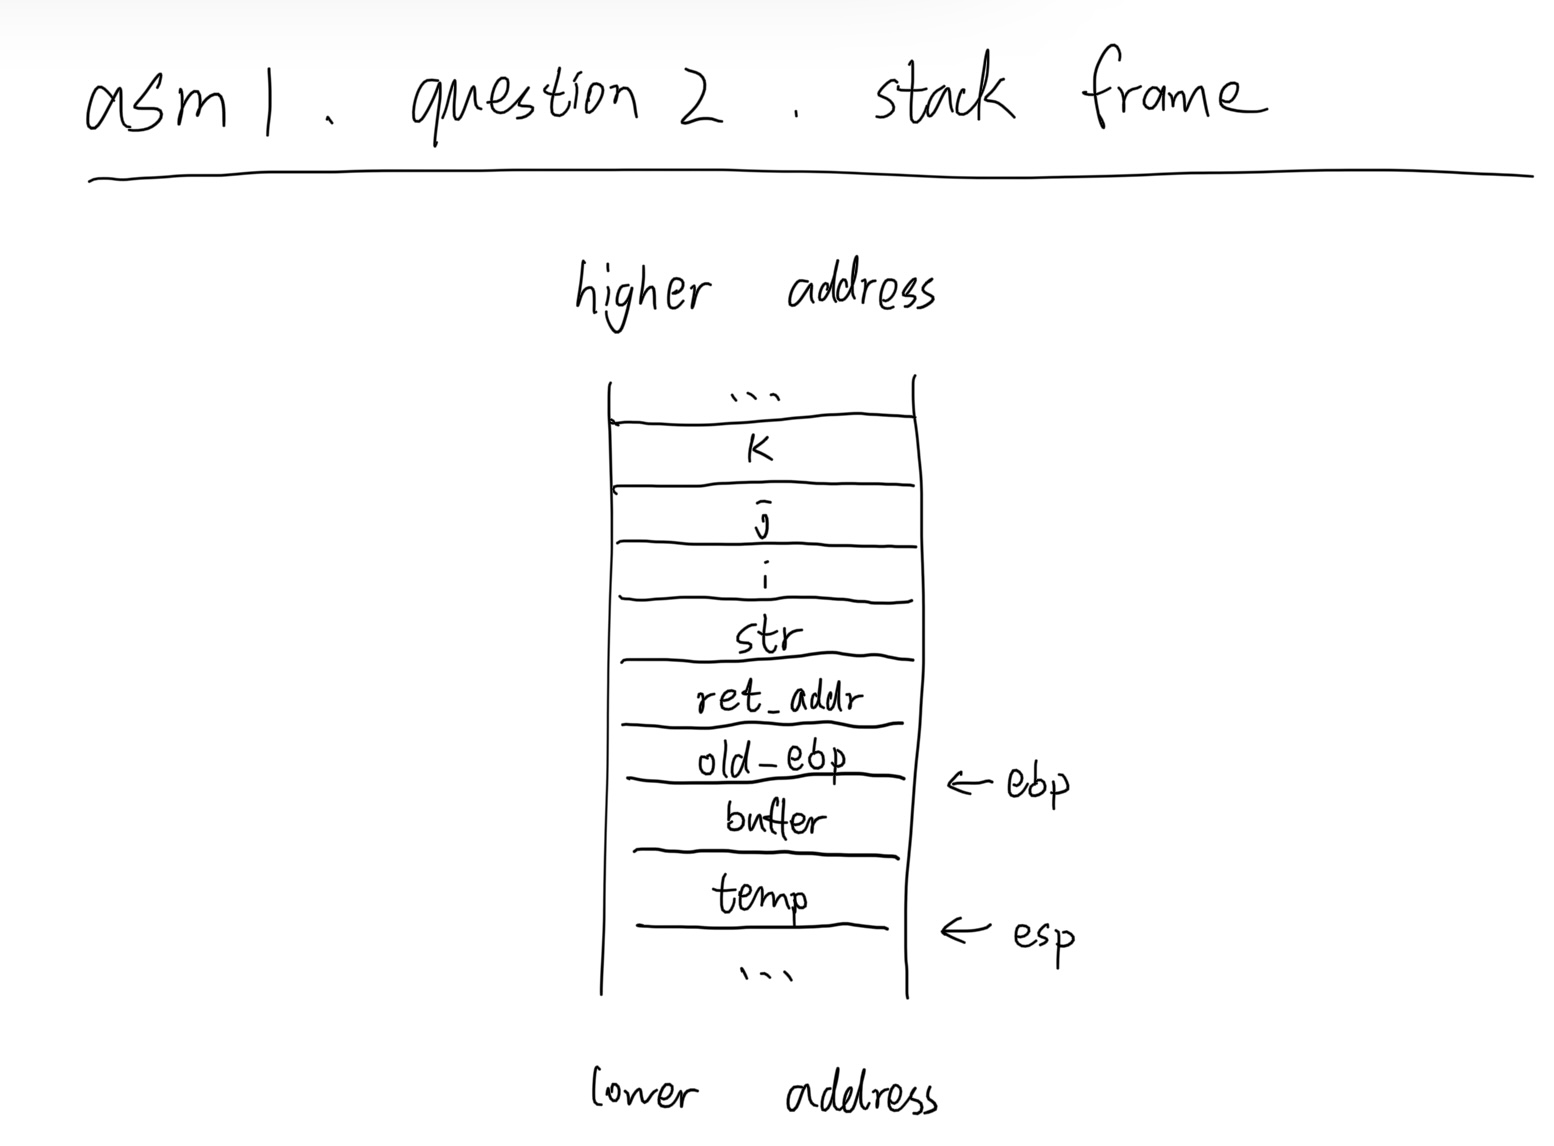 asm 1 . question 2 . stack frame
higher address
...
k
j
i
str
ret_addr
old_ebp
← ebp
buffer
temp
← esp
...
lower address